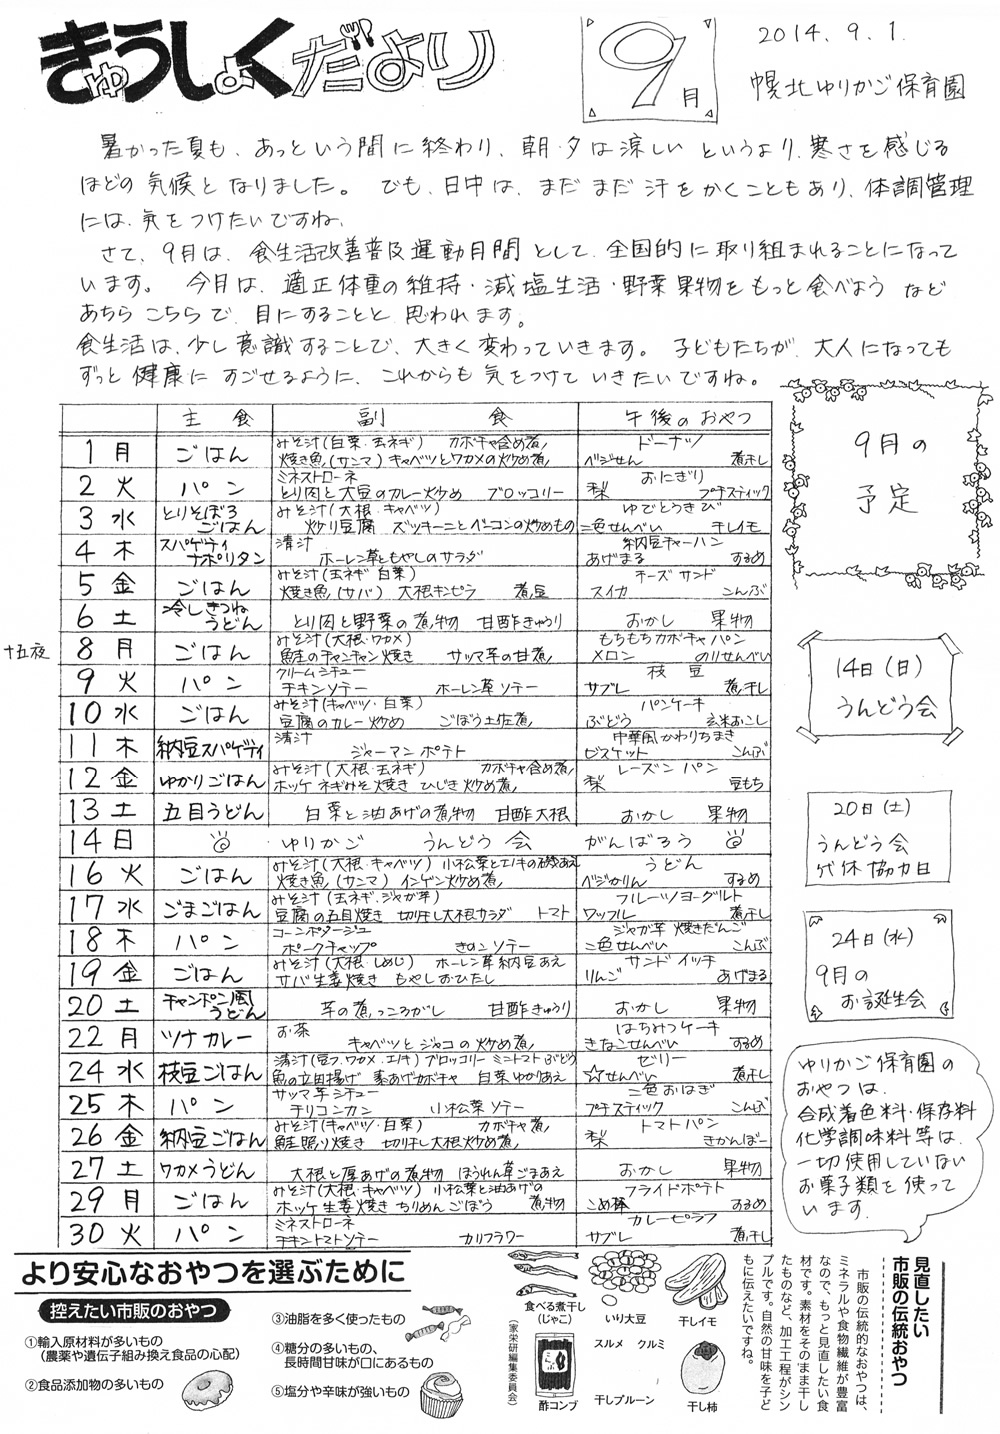 きゅうしょくだより
9月
2014.9.1.
幌北ゆりかご保育園
暑かった夏も、あっという間に終わり、朝・夕は涼しいというより、寒さを感じる
ほどの気候となりました。でも、日中は、まだまだ汗をかくこともあり、体調管理
には、気をつけたいですね。
さて、9月は、食生活改善普及運動月間として、全国的に取り組まれることになって
います。今月は、適正体重の維持・減塩生活・野菜果物をもっと食べようなど
あちらこちらで、目にすることと思われます。
食生活は、少し意識することで、大きく変わっていきます。子どもたちが、大人になっても
ずっと健康にすごせるように、これからも気をつけていきたいですね。
主食 副食 午後のおやつ
1 月 ごはん みそ汁(白菜・玉ネギ) カボチャ含め煮 ドーナツ
焼き魚(サンマ) キャベツとワカメの炒め煮 ベジせん 煮干し
2 火 パン ミネストローネ おにぎり
とり肉と大豆のカレー炒め ブロッコリー 梨 プチスティック
3 水 とりそぼろごはん みそ汁(大根・キャベツ) ゆでとうきび
炒り豆腐 ズッキーニとベーコンの炒めもの 二色せんべい 干しイモ
4 木 スパゲティナポリタン 清汁 納豆チャーハン
ホーレン草ともやしのサラダ あげまる するめ
5 金 ごはん みそ汁(玉ネギ 白菜) チーズサンド
焼き魚(サバ) 大根キンピラ 煮豆 スイカ こんぶ
6 土 冷しきつねうどん とり肉と野菜の煮物 甘酢きゅうり おかし 果物
十五夜
8 月 ごはん みそ汁(大根・ワカメ) もちもちカボチャパン
鮭のチャンチャン焼き サツマ芋の甘煮 メロン のりせんべい
9 火 パン クリームシチュー 枝豆
チキンソテー ホーレン草ソテー サブレ 煮干し
10 水 ごはん みそ汁(キャベツ・白菜) パンケーキ
豆腐のカレー炒め ごぼう土佐煮 ぶどう 玄米おこし
11 木 納豆スパゲティ 清汁 中華風かわりちまき
ジャーマンポテト ビスケット こんぶ
12 金 ゆかりごはん みそ汁(大根・玉ネギ) カボチャ含め煮 レーズンパン
ホッケネギみそ焼き ひじき炒め煮 梨 豆もち
13 土 五目うどん 白菜と油あげの煮物 甘酢大根 おかし 果物
14 日 ゆりかご うんどう会 がんばろう
16 火 ごはん みそ汁(大根・キャベツ) 小松菜とエノキの磯あえ うどん
焼き魚(サンマ) インゲン炒め煮 ベジかりん するめ
17 水 ごまごはん みそ汁(玉ネギ・ジャガ芋) フルーツヨーグルト
豆腐の五目焼き 切り干し大根サラダ トマト ワッフル 煮干し
18 木 パン コーンポタージュ ジャガ芋焼きだんご
ポークチャップ きのこソテー 二色せんべい こんぶ
19 金 ごはん みそ汁(大根・しめじ) ホーレン草納豆あえ サンドイッチ
サバ生姜焼き もやしおひたし りんご あげまる
20 土 チャンポン風うどん 芋の煮っころがし 甘酢きゅうり おかし 果物
22 月 ツナカレー お茶 はちみつケーキ
キャベツとジャコの炒め煮 きなこせんべい するめ
24 水 枝豆ごはん 清汁(豆フ、ワカメ・エノキ) ブロッコリー ミニトマト ぶどう ゼリー
魚の立田揚げ 素あげカボチャ 白菜ゆかりあえ ☆せんべい 煮干し
25 木 パン サツマ芋シチュー 二色おはぎ
チリコンカン 小松菜ソテー プチスティック こんぶ
26 金 納豆ごはん みそ汁(キャベツ・白菜) カボチャ煮 トマトパン
鮭照り焼き 切干し大根炒め煮 梨 きかんぼー
27 土 ワカメうどん 大根と厚あげの煮物 ほうれん草ごまあえ おかし 果物
29 月 ごはん みそ汁(大根・キャベツ) 小松菜と油あげの煮物 フライドポテト
ホッケ生姜焼き ちりめんごぼう こめ棒 するめ
30 火 パン ミネストローネ カレーピラフ
チキントマトソテー カリフラワー サブレ 煮干し
9月の
予定
14日(日)
うんどう会
20日(土)
うんどう会
代休協力日
24日(水)
9月の
お誕生会
ゆりかご保育園の
おやつは、
合成着色料・保存料
化学調味料等は、
一切使用していない
お菓子類を使って
います。
より安心なおやつを選ぶために
控えたい市販のおやつ
①輸入原材料が多いもの
(農薬や遺伝子組み換え食品の心配)
②食品添加物の多いもの
③油脂を多く使ったもの
④糖分の多いもの、
長時間甘味が口にあるもの
⑤塩分や辛味が強いもの
(家栄研編集委員会)
食べる煮干し
(じゃこ)
いり大豆
干しイモ
こんぶ
酢コンブ
スルメ クルミ
干しプルーン
干し柿
見直したい
市販の伝統おやつ
市販の伝統的なおやつは、
ミネラルや食物繊維が豊富
なので、もっと見直したい食
材です。素材をそのまま干し
たものなど、加工工程がシン
プルです。自然の甘味を子ど
もに伝えたいですね。